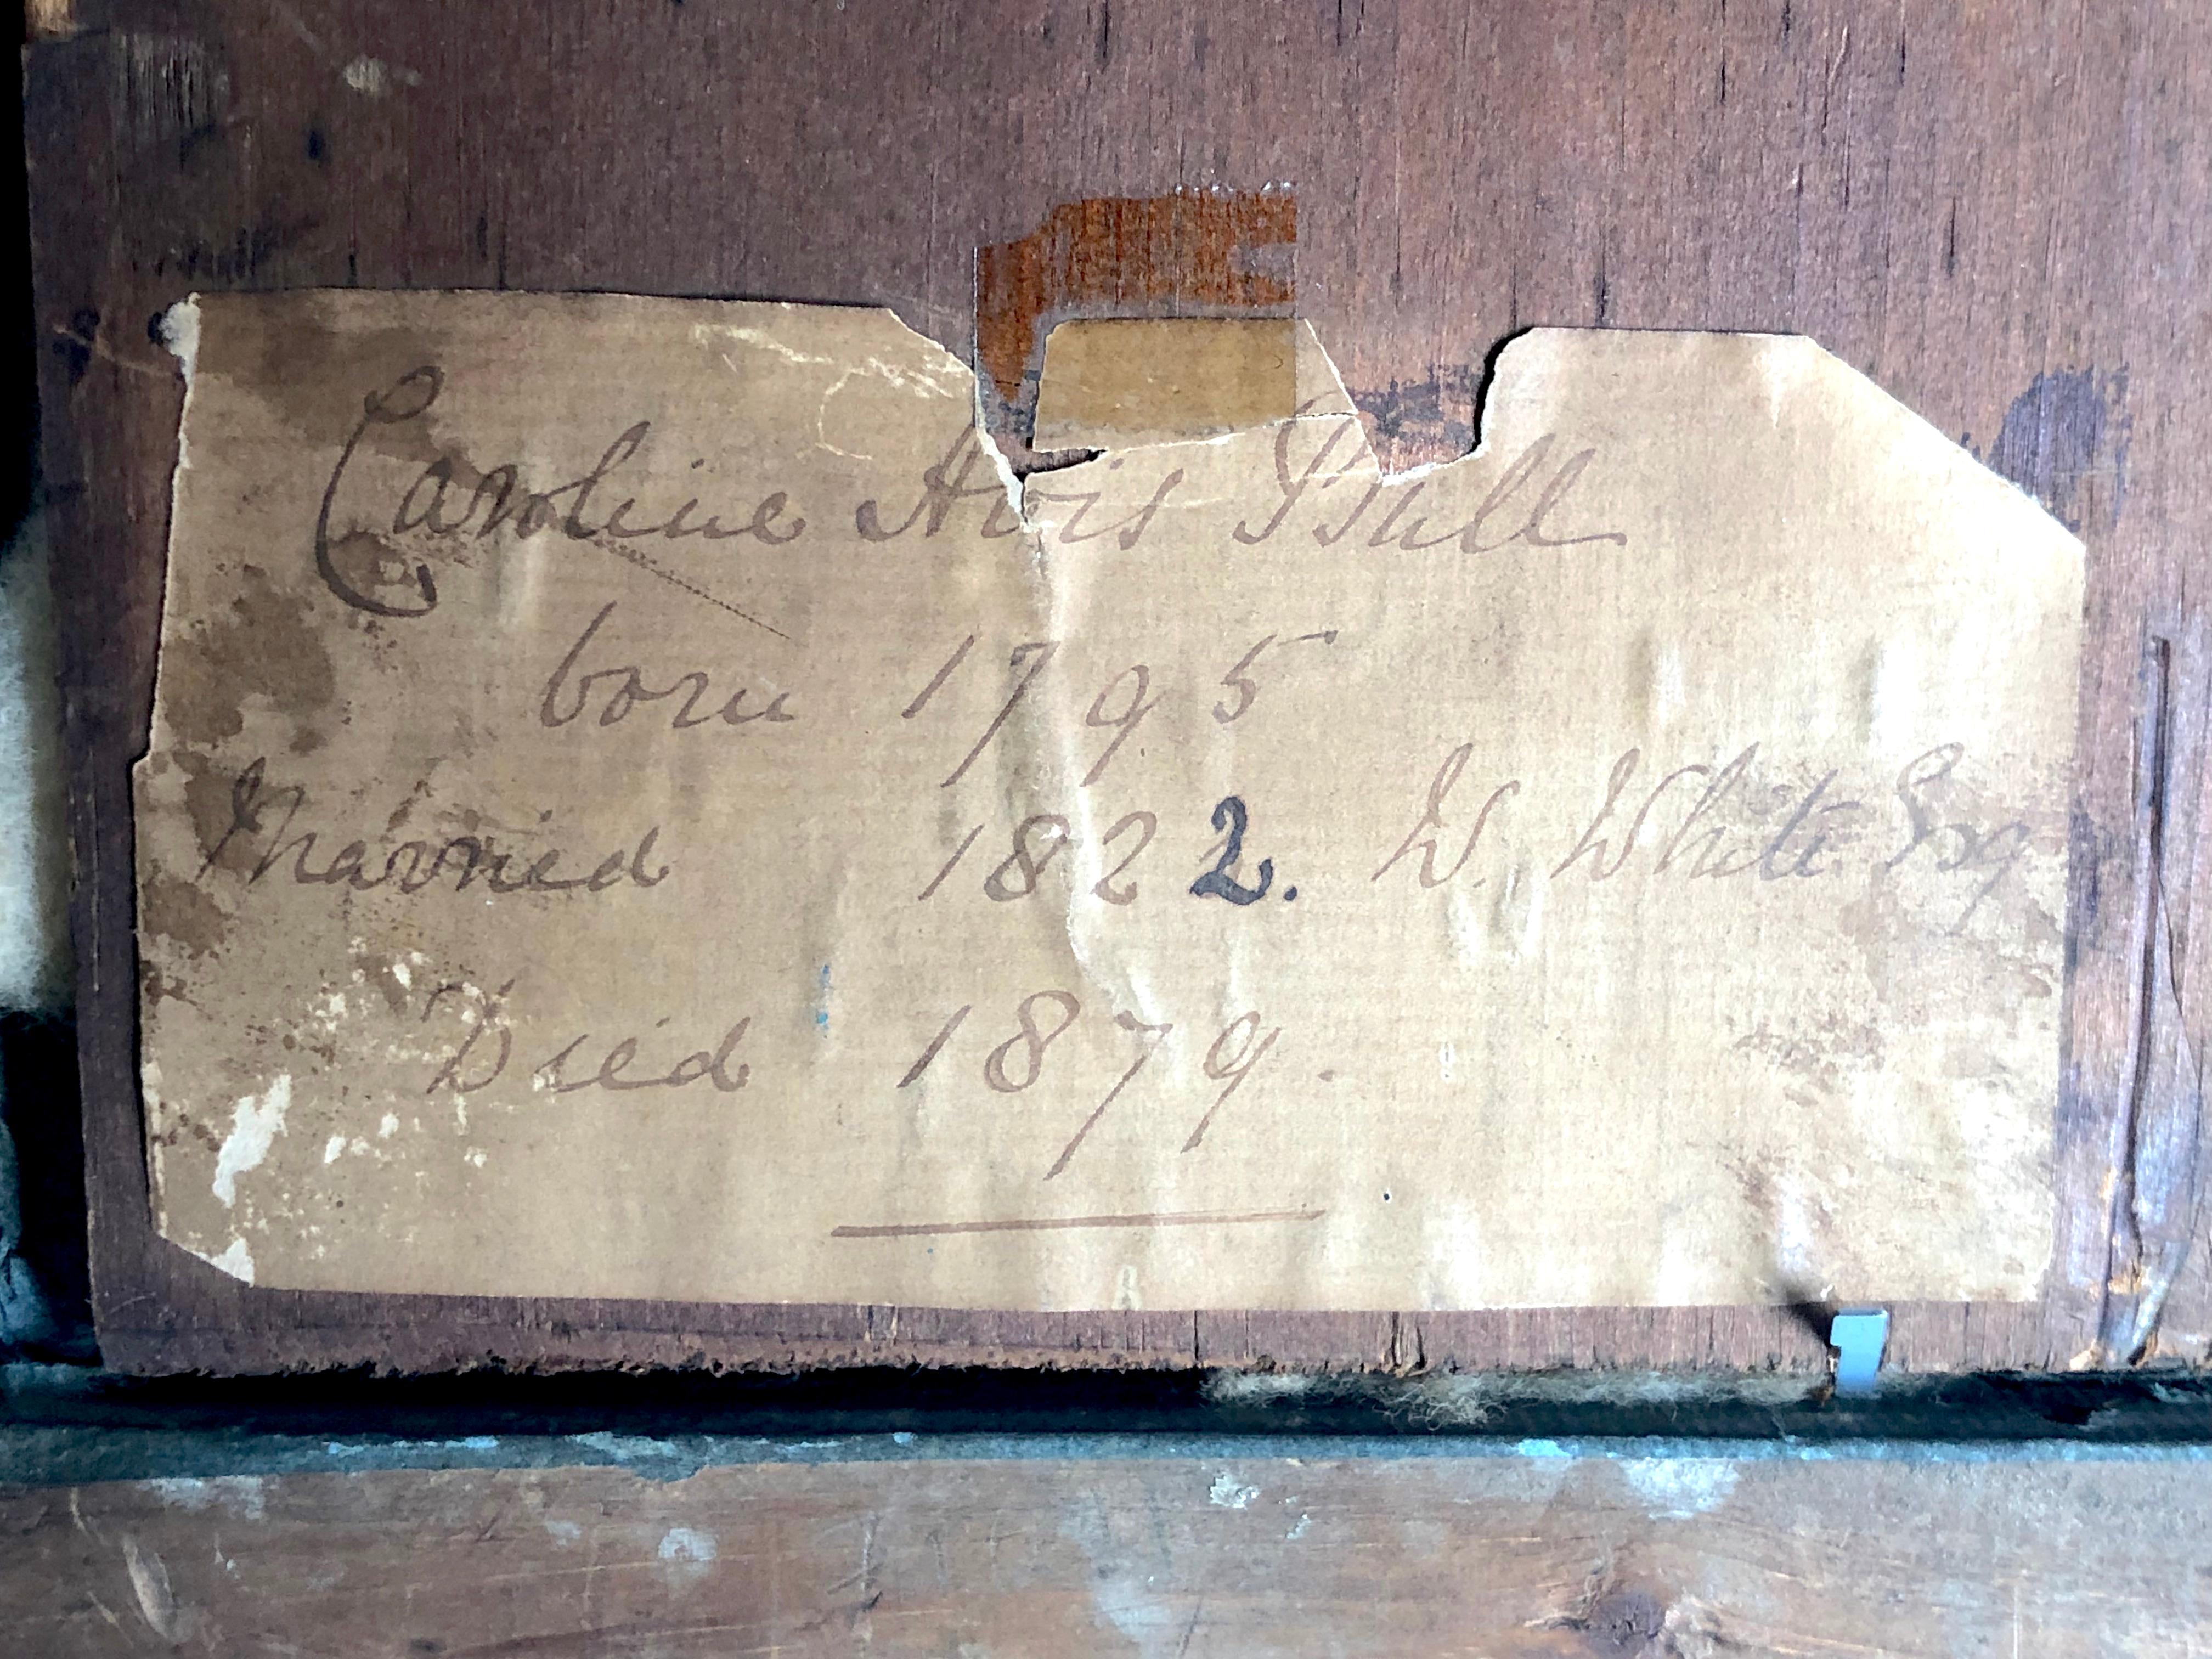 Caroline Avis Bull
born 1795
Married 1822. W. White Esq
Died 1879.